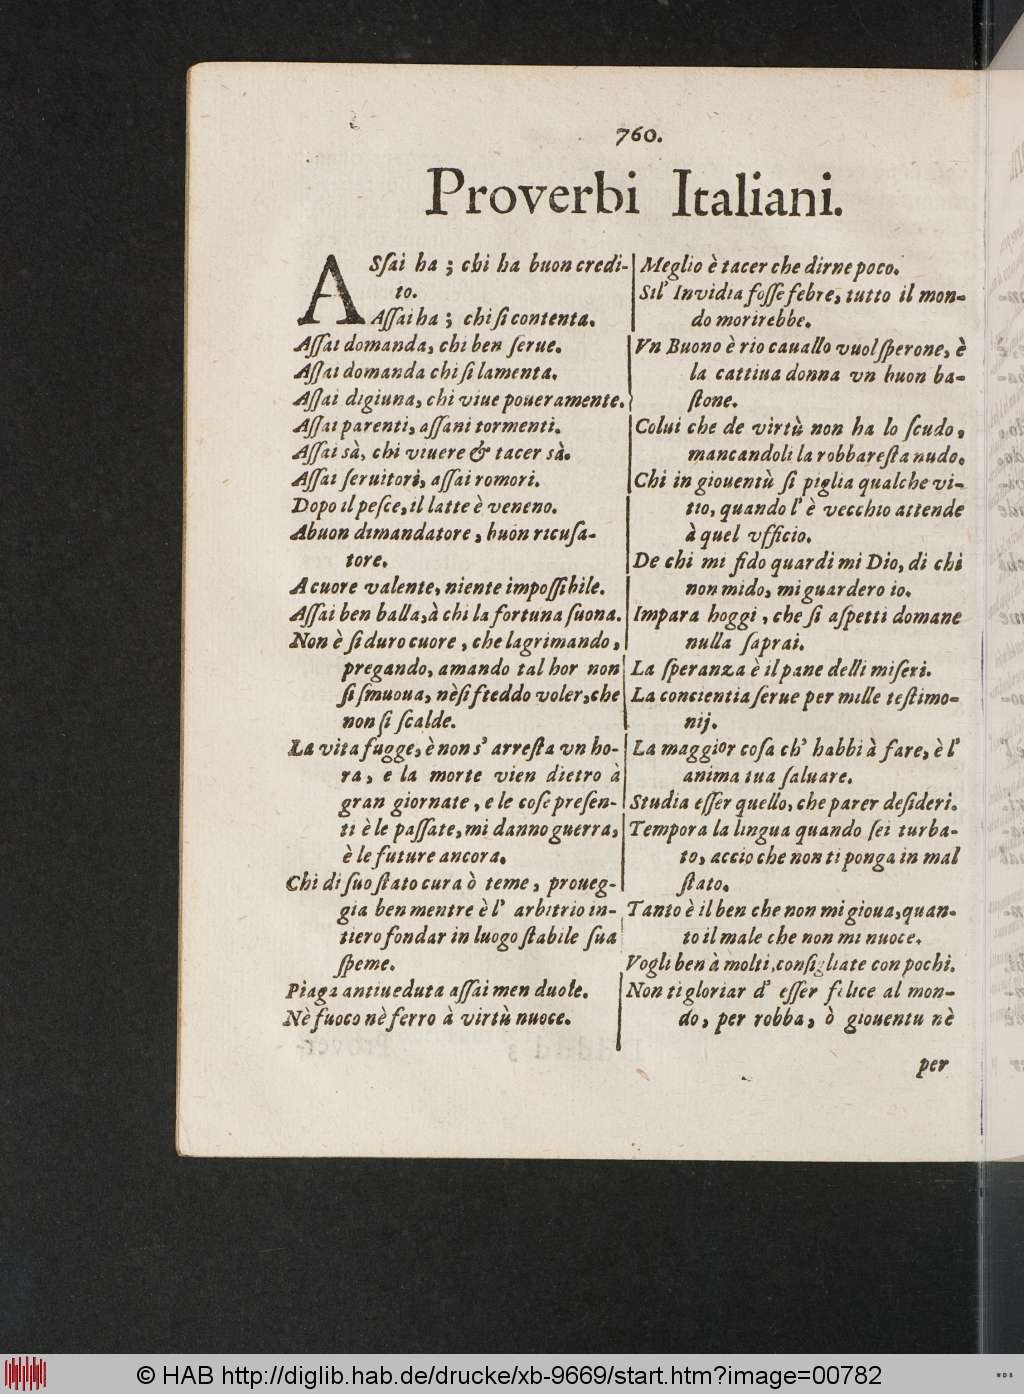 760.
Proverbi Italiani.
ASſai ha ; chi ha buon credi-
to.
Aſſai ha ; chi ſi contenta.
Aſſai domanda, chi ben ſerue.
Aſſai domanda chi ſi lamenta.
Aſſai digiuna, chi viue poueramente.
Aſſai parenti, aſſani tormenti.
Aſſai sà, chi viuere & tacer sà.
Aſſai ſeruitori, aſſai romori.
Dopo il peſce, il latte è veneno.
Abuon dimandatore, buon ricuſa-
tore.
A cuore valente, niente impoſſibile.
Aſſai ben balla, à chi la fortuna ſuona.
Non è ſi duro cuore, che lagrimando,
pregando, amando tal hor non
ſi ſmuoua, nè ſi fteddo voler, che
non ſi ſcalde.
La vita fugge, è non s' arreſta vn ho-
ra, e la morte vien dietro à
gran giornate, e le coſe preſen-
ti è le paſſate, mi danno guerra,
è le future ancora.
Chi di ſuo ſtato cura ò teme, proueg-
gia ben mentre è l' arbitrio in-
tiero fondar in luogo ſtabile ſua
ſpeme.
Piaga antiueduta aſſai men duole.
Nè fuoco nè ferro à virtù nuoce.
Meglio è tacer che dirne poco.
Sil' Invidia foſſe febre, tutto il mon-
do morirebbe.
Vn Buono è rio cauallo vuol ſperone, è
la cattiua donna vn buon ba-
ſtone.
Colui che de virtù non ha lo ſcudo,
mancandoli la robba reſta nudo.
Chi in giouentù ſi piglia qualche vi-
tio, quando l' è vecchio attende
à quel vfficio.
De chi mi fido quardi mi Dio, di chi
non mido, mi guardero io.
Impara hoggi, che ſi aſpetti domane
nulla ſaprai.
La ſperanza è il pane delli miſeri.
La concientia ſerue per mille teſtimo-
nij.
La maggior coſa ch' habbi à fare, è l'
anima tua ſaluare.
Studia eſſer quello, che parer deſideri.
Tempora la lingua quando ſei turba-
to, accio che non ti ponga in mal
ſtato.
Tanto è il ben che non mi gioua, quan-
to il male che non mi nuoce.
Vogli ben à molti, conſigliate con pochi.
Non ti gloriar d' eſſer felice al mon-
do, per robba, ò giouentu nè
per
© HAB http://diglib.hab.de/drucke/xb-9669/start.htm?image=00782